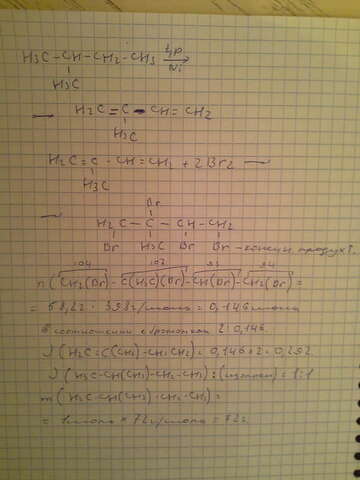 H3C – CH – CH2 – CH3 t,p Ni →
H3C
→ H2C = C – CH = CH2
H3C
H2C = C – CH = CH2 + 2Br2 →
H3C
Br
→ H2C – C – CH – CH2
Br H3C Br Br - конечн продукт.
104 93 94
n(CH2(Br) - C(H3C)(Br) - CH(Br) - CH2(Br)) =
= 58,2г : 398г/моль = 0,146 моль
в соотношении с бромом 2:0,146
(H2C=C(CH3)-CH=CH2) = 0,146 * 2 = 0,292
(H3C-CH(CH3)-CH2-CH3) : = 1:1
m(H3C-CH(CH3)-CH2-CH3) =
= 1моль * 72г/моль = 72г